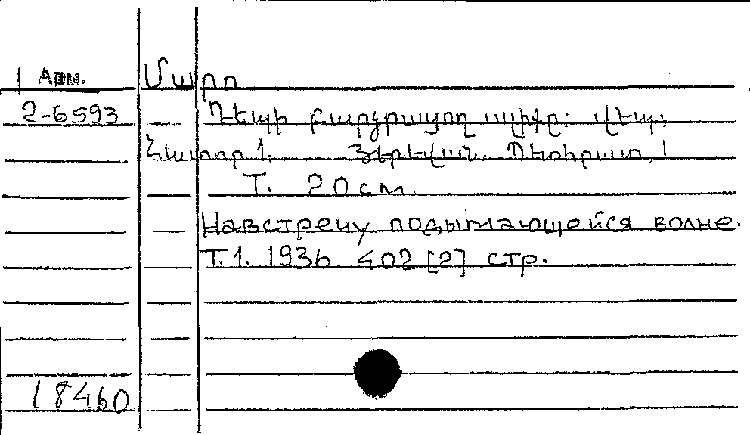 Арм. Մարո
2-6593 — Դեպի բարձրացող ալիքը: վեպ:
Հատոր 1. Յերեվան. Պետհրատ,
T. 20 см
— Навстречу подымающейся волне.
T. 1. 1936 402 [2] стр.
18460